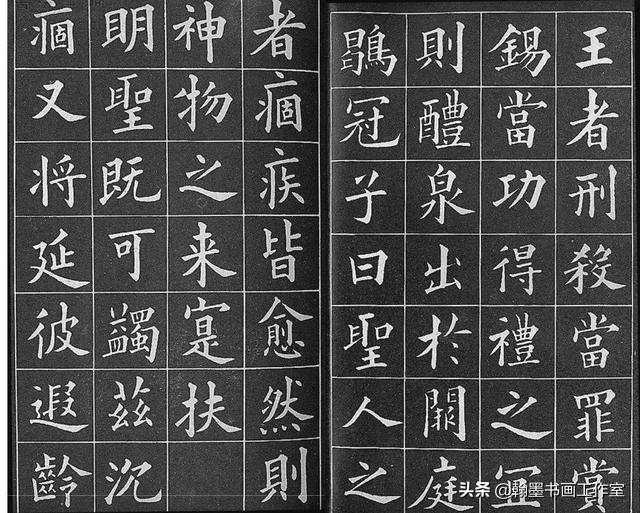 王者刑殺當罪賞
錫當功得禮之宜
則醴泉出於闕庭
鶡冠子曰聖人之
者痼疾皆愈然則
神物之来寔扶
明聖既可蠲茲沉
痼又将延彼遐齡
头条 @翰墨书画工作室